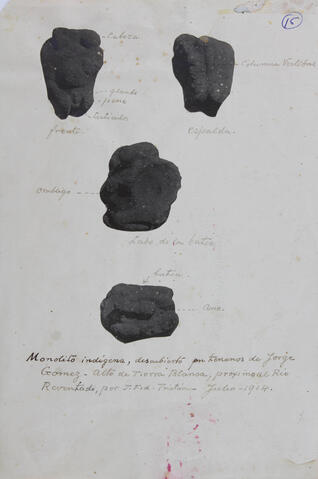 15
Cabeza
Columna Vertebral
glande
pene
testiculos
frente
espalda.
ombligo
Lado de la batea
batea
ano.
Monolito indigena, descubierto en terrenos de Jorge
Gómez - Alto de Tierra Blanca, proximo al Rio
Reventado, por J. Fid. Tristán - Julio - 1914.